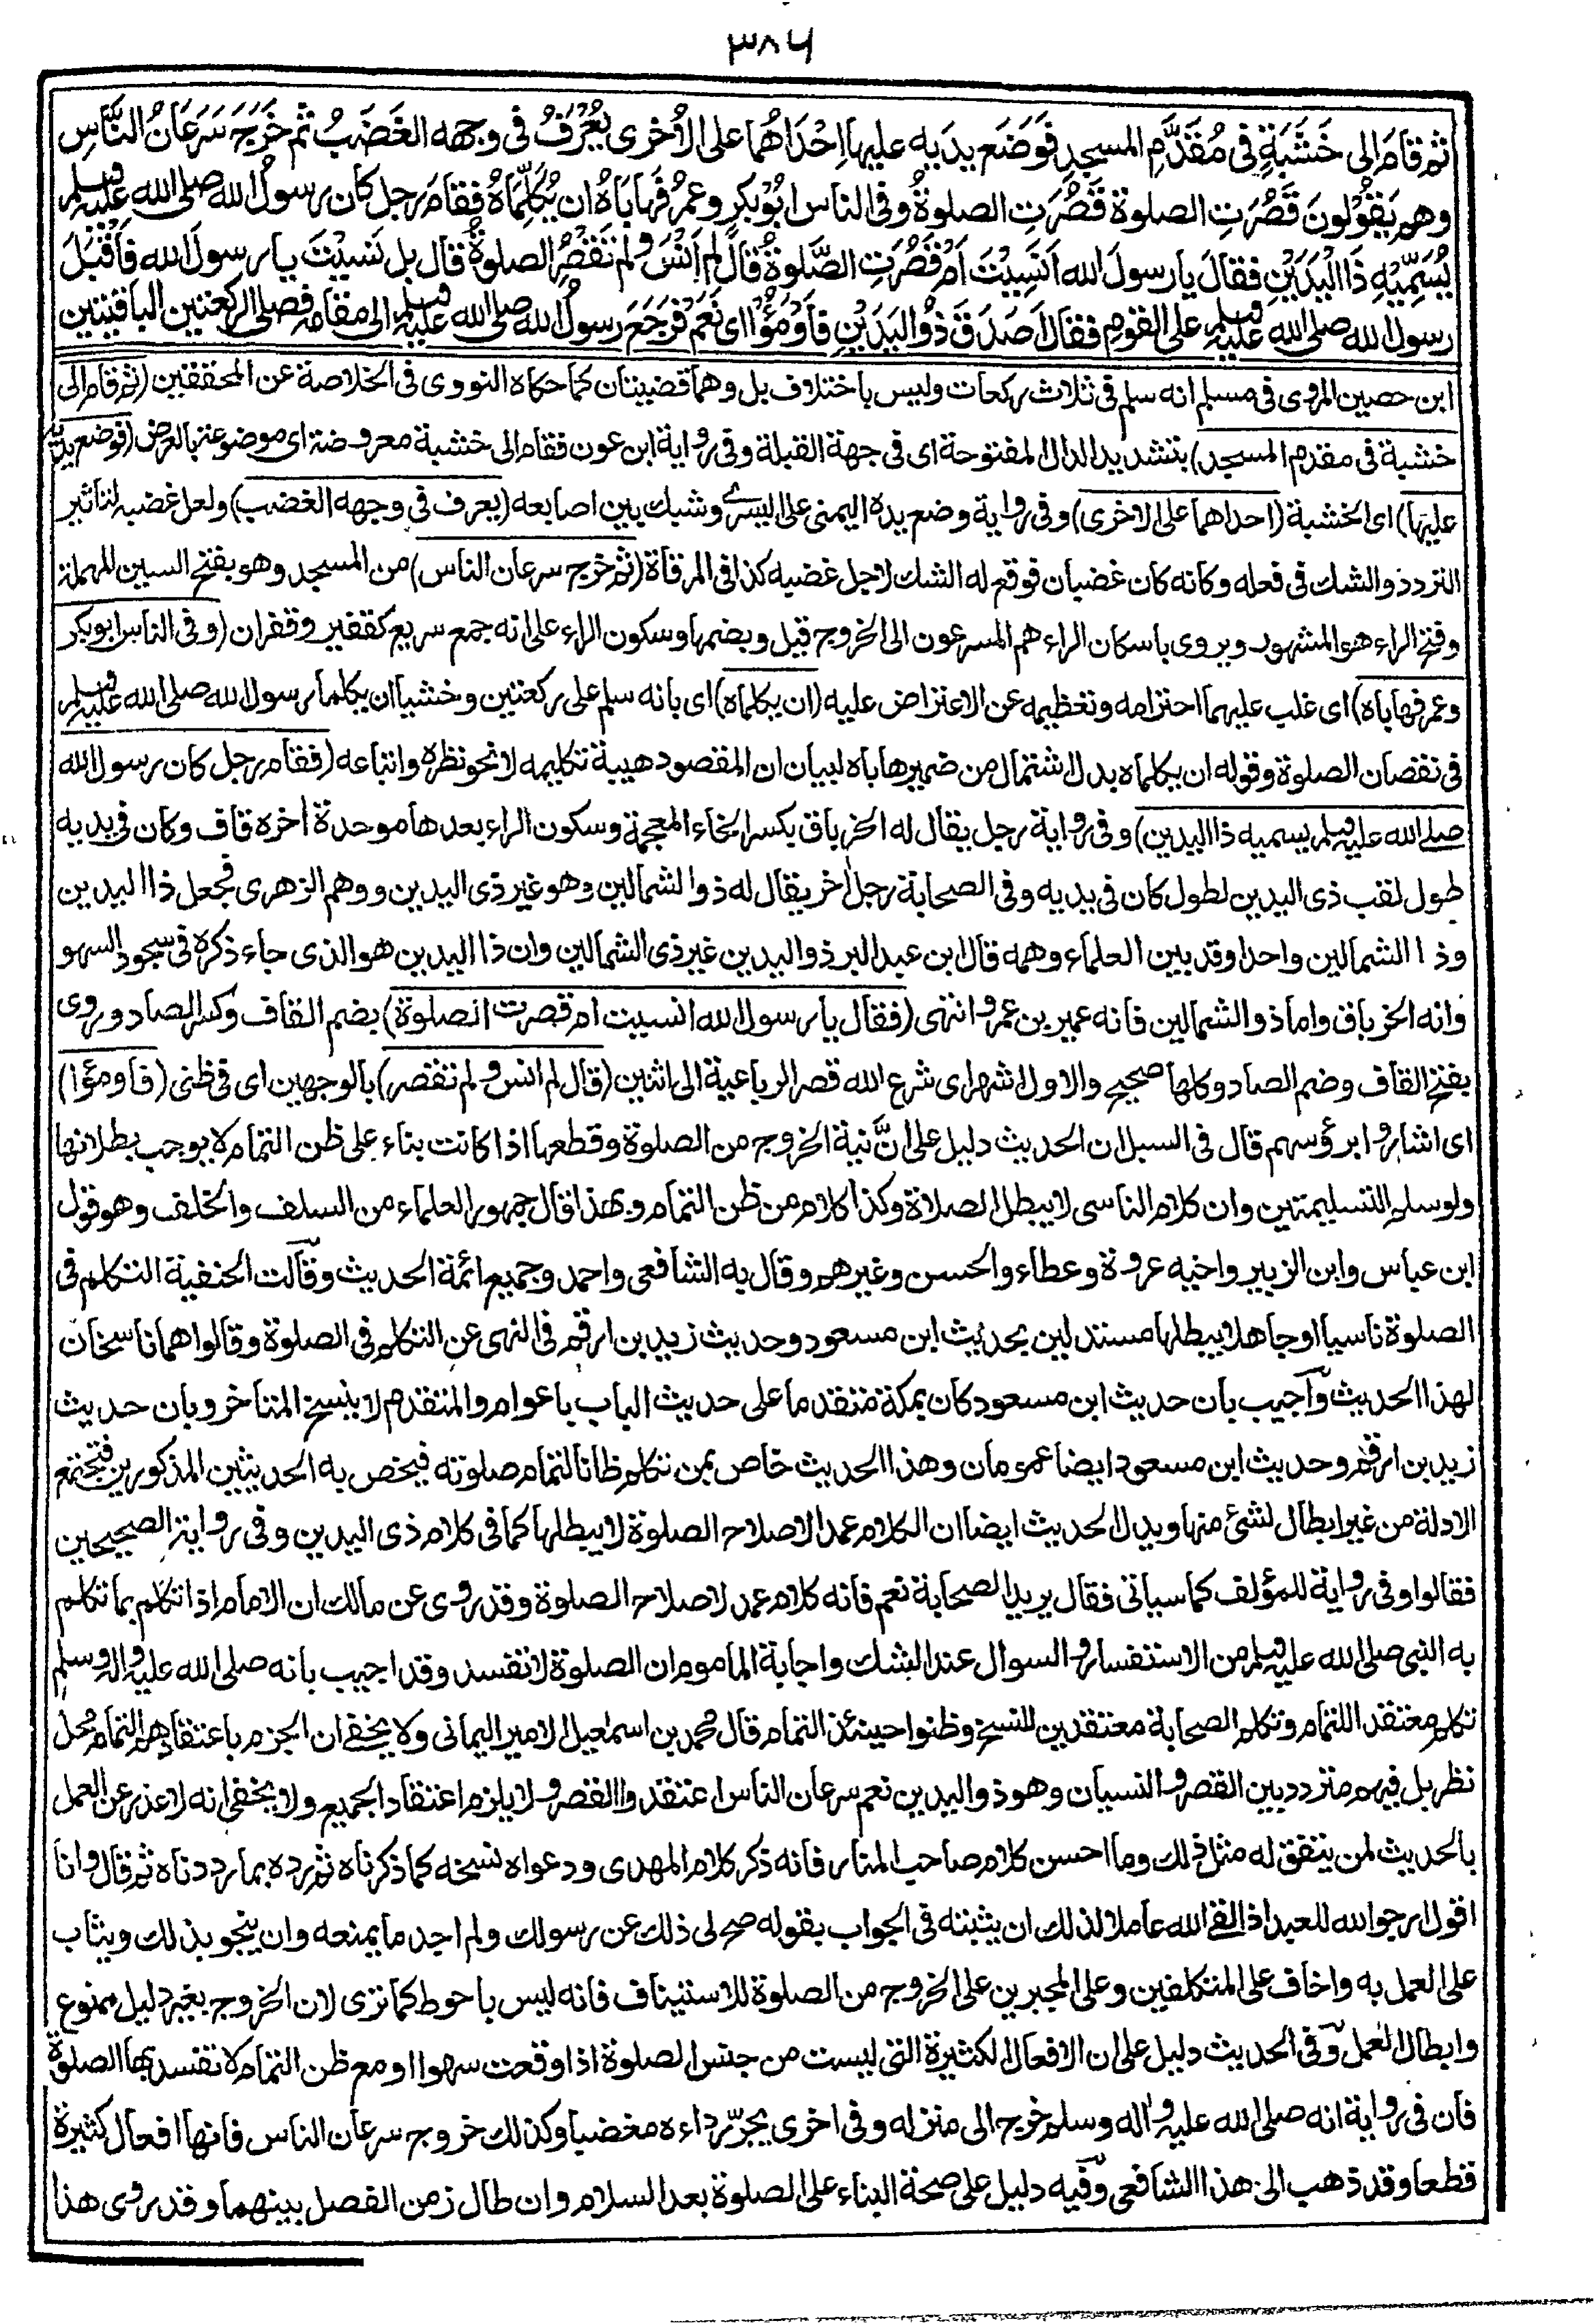 ٣٨٦
ثم قامَ الى خَشَبَةٍ فى مُقَدَّمِ المسجدِ فَوَضَع يدَيه عليها اِحْدَاهُما على الأُخرى يُعْرَفُ فى وجهه الغَضَبُ ثم خَرَجَ سَرَعَانُ النَّاسِ
وهم يَقُوْلونَ قَصُرَتِ الصلوة قَصُرَتِ الصلوةُ وفى الناس ابُوْبكرٍ وعمرُ فَهَابَاهُ ان يُكَلِّمَاهُ فقامَ رجل كان رسولُ الله صلى الله عليه وسلم
يُسَمِّيْهِ ذَا الْيَدَيْنِ فقالَ يا رسولَ الله اَنَسِيْتَ اَمْ قَصُرَتِ الصَّلوةُ قَالَ لم اَنْسَ ولم تَقْصُرِ الصلوةُ قال بل نَسِيْتَ يا رسولَ الله فاَقْبَلَ
رسولُ الله صلى الله عليه وسلم على القومِ فقالَ اَصَدَقَ ذُو اليَدَيْنِ فاَوْمَؤُا اى نَعَمْ فَرَجَعَ رسولُ الله صلى الله عليه وسلم الى مقامِه فصلى الركعتين الباقيتين
ابن حصين المروى فى مسلم انه سلم فى ثلاث ركعات وليس باختلاف بل وهما قضيتان كما حكاه النووى فى الخلاصة عن المحققين (ثم قام الى
خشبة فى مقدم المسجد) بتشديد الدال المفتوحة اى فى جهة القبلة وفى رواية ابن عون فقام الى خشبة معروضة اى موضوعة بالعرض (فوضع يديه
عليها) اى الخشبة (احداهما على الاخرى) وفى رواية وضع يده اليمنى على اليسرى وشبك بين اصابعه (يعرف فى وجهه الغضب) ولعل غضبه لتاثير
التردد والشك فى فعله وكانه كان غضبان فوقع له الشك لاجل غضبه كذا فى المرقاة (ثم خرج سرعان الناس) من المسجد وهو بفتح السين المهملة
وفتح الراء هو المشهور ويروى باسكان الراء هم المسرعون الى الخروج قيل وبضمها وسكون الراء على انه جمع سريع كقفيز وقفزان (وفى الناس ابو بكر
وعمر فهاباه) اى غلب عليهما احترامه وتعظيمه عن الاعتراض عليه (ان يكلماه) اى بانه سلم على ركعتين وخشيا ان يكلما رسول الله صلى الله عليه وسلم
فى نقصان الصلوة وقوله ان يكلماه بدل اشتمال من ضمير هاباه لبيان ان المقصود هيبة تكليمه لا نحو نظره واتباعه (فقام رجل كان رسول الله
صلى الله عليه وسلم يسميه ذا اليدين) وفى رواية رجل يقال له الخرباق بكسر الخاء المعجمة وسكون الراء بعدها موحدة آخره قاف وكان فى يديه
طول لقب ذى اليدين لطول كان فى يديه وفى الصحابة رجل آخر يقال له ذو الشمالين وهو غير ذى اليدين ووهم الزهرى فجعل ذا اليدين
وذا الشمالين واحدا وقد بين العلماء وهمه قال ابن عبد البر ذو اليدين غير ذى الشمالين وان ذا اليدين هو الذى جاء ذكره فى سجود السهو
وانه الخرباق واما ذو الشمالين فانه عمير بن عمرو انتهى (فقال يا رسول الله انسيت ام قصرت الصلوة) بضم القاف وكسر الصاد وروى
بفتح القاف وضم الصاد وكلها صحيح والاول اشهر اى شرع الله قصر الرباعية الى اثنين (قال لم انس ولم تقصر) بالوجهين اى فى ظنى (فاومؤا)
اى اشاروا برؤسهم قال فى السبل ان الحديث دليل على انَّ نية الخروج من الصلوة وقطعها اذا كانت بناء على ظن التمام لا يوجب بطلانها
ولو سلم التسليمتين وان كلام الناسى لا يبطل الصلاة وكذا كلام من ظن التمام وبهذا قال جمهور العلماء من السلف والخلف وهو قول
ابن عباس وابن الزبير واخيه عروة وعطاء والحسن وغيرهم وقال به الشافعى واحمد وجميع ائمة الحديث وقالت الحنفية التكلم فى
الصلوة ناسيا او جاهلا يبطلها مستدلين بحديث ابن مسعود وحديث زيد بن ارقم فى النهى عن التكلم فى الصلوة وقالوا هما ناسخان
لهذا الحديث واجيب بان حديث ابن مسعود كان بمكة متقدما على حديث الباب باعوام والمتقدم لا ينسخ المتاخر وبان حديث
زيد بن ارقم وحديث ابن مسعود ايضا عمومان وهذا الحديث خاص بمن تكلم ظانا لتمام صلوته فيخص به الحديثين المذكورين فتجتمع
الادلة من غير ابطال لشئ منها ويدل الحديث ايضا ان الكلام عمدا لاصلاح الصلوة لا يبطلها كما فى كلام ذى اليدين وفى رواية الصحيحين
فقالوا وفى رواية للمؤلف كما سياتى فقال يريد الصحابة نعم فانه كلام عمد لاصلاح الصلوة وقد روى عن مالك ان الامام اذا تكلم بما تكلم
به النبى صلى الله عليه وسلم من الاستفسار والسوال عند الشك واجابة الماموم ان الصلوة لا تفسد وقد اجيب بانه صلى الله عليه واله وسلم
تكلم معتقد اللتمام وتكلم الصحابة معتقدين للنسخ وظنوا حينئذ التمام قال محمد بن اسمعيل الامير اليمانى ولا يخفى ان الجزم باعتقادهم التمام محل
نظر بل فيهم متردد بين القصر والنسيان وهو ذو اليدين نعم سرعان الناس اعتقدوا القصر ولا يلزم اعتقاد الجميع ولا يخفى انه لا عذر عن العمل
بالحديث لمن يتفق له مثل ذلك وما احسن كلام صاحب المنار فانه ذكر كلام المهدى ودعواه نسخه كما ذكرناه ثم رده بما رددناه ثم قال وانا
اقول ارجو الله للعبد اذا لقى الله عاملا لذلك ان يثبته فى الجواب بقوله صح لى ذلك عن رسولك ولم اجد ما يمنعه وان ينجو بذلك ويثاب
على العمل به واخاف على المتكلفين وعلى المجبرين على الخروج من الصلوة للاستيناف فانه ليس باحوط كما ترى لان الخروج بغير دليل ممنوع
وابطال العمل وفى الحديث دليل على ان الافعال الكثيرة التى ليست من جنس الصلوة اذا وقعت سهوا او مع ظن التمام لا تفسد بها الصلوة
فان فى رواية انه صلى الله عليه واله وسلم خرج الى منزله وفى اخرى يجرّ رداءه مغضبا وكذلك خروج سرعان الناس فانها افعال كثيرة
قطعا وقد ذهب الى هذا الشافعى وفيه دليل على صحة البناء على الصلوة بعد السلام وان طال زمن الفصل بينهما وقد روى هذا